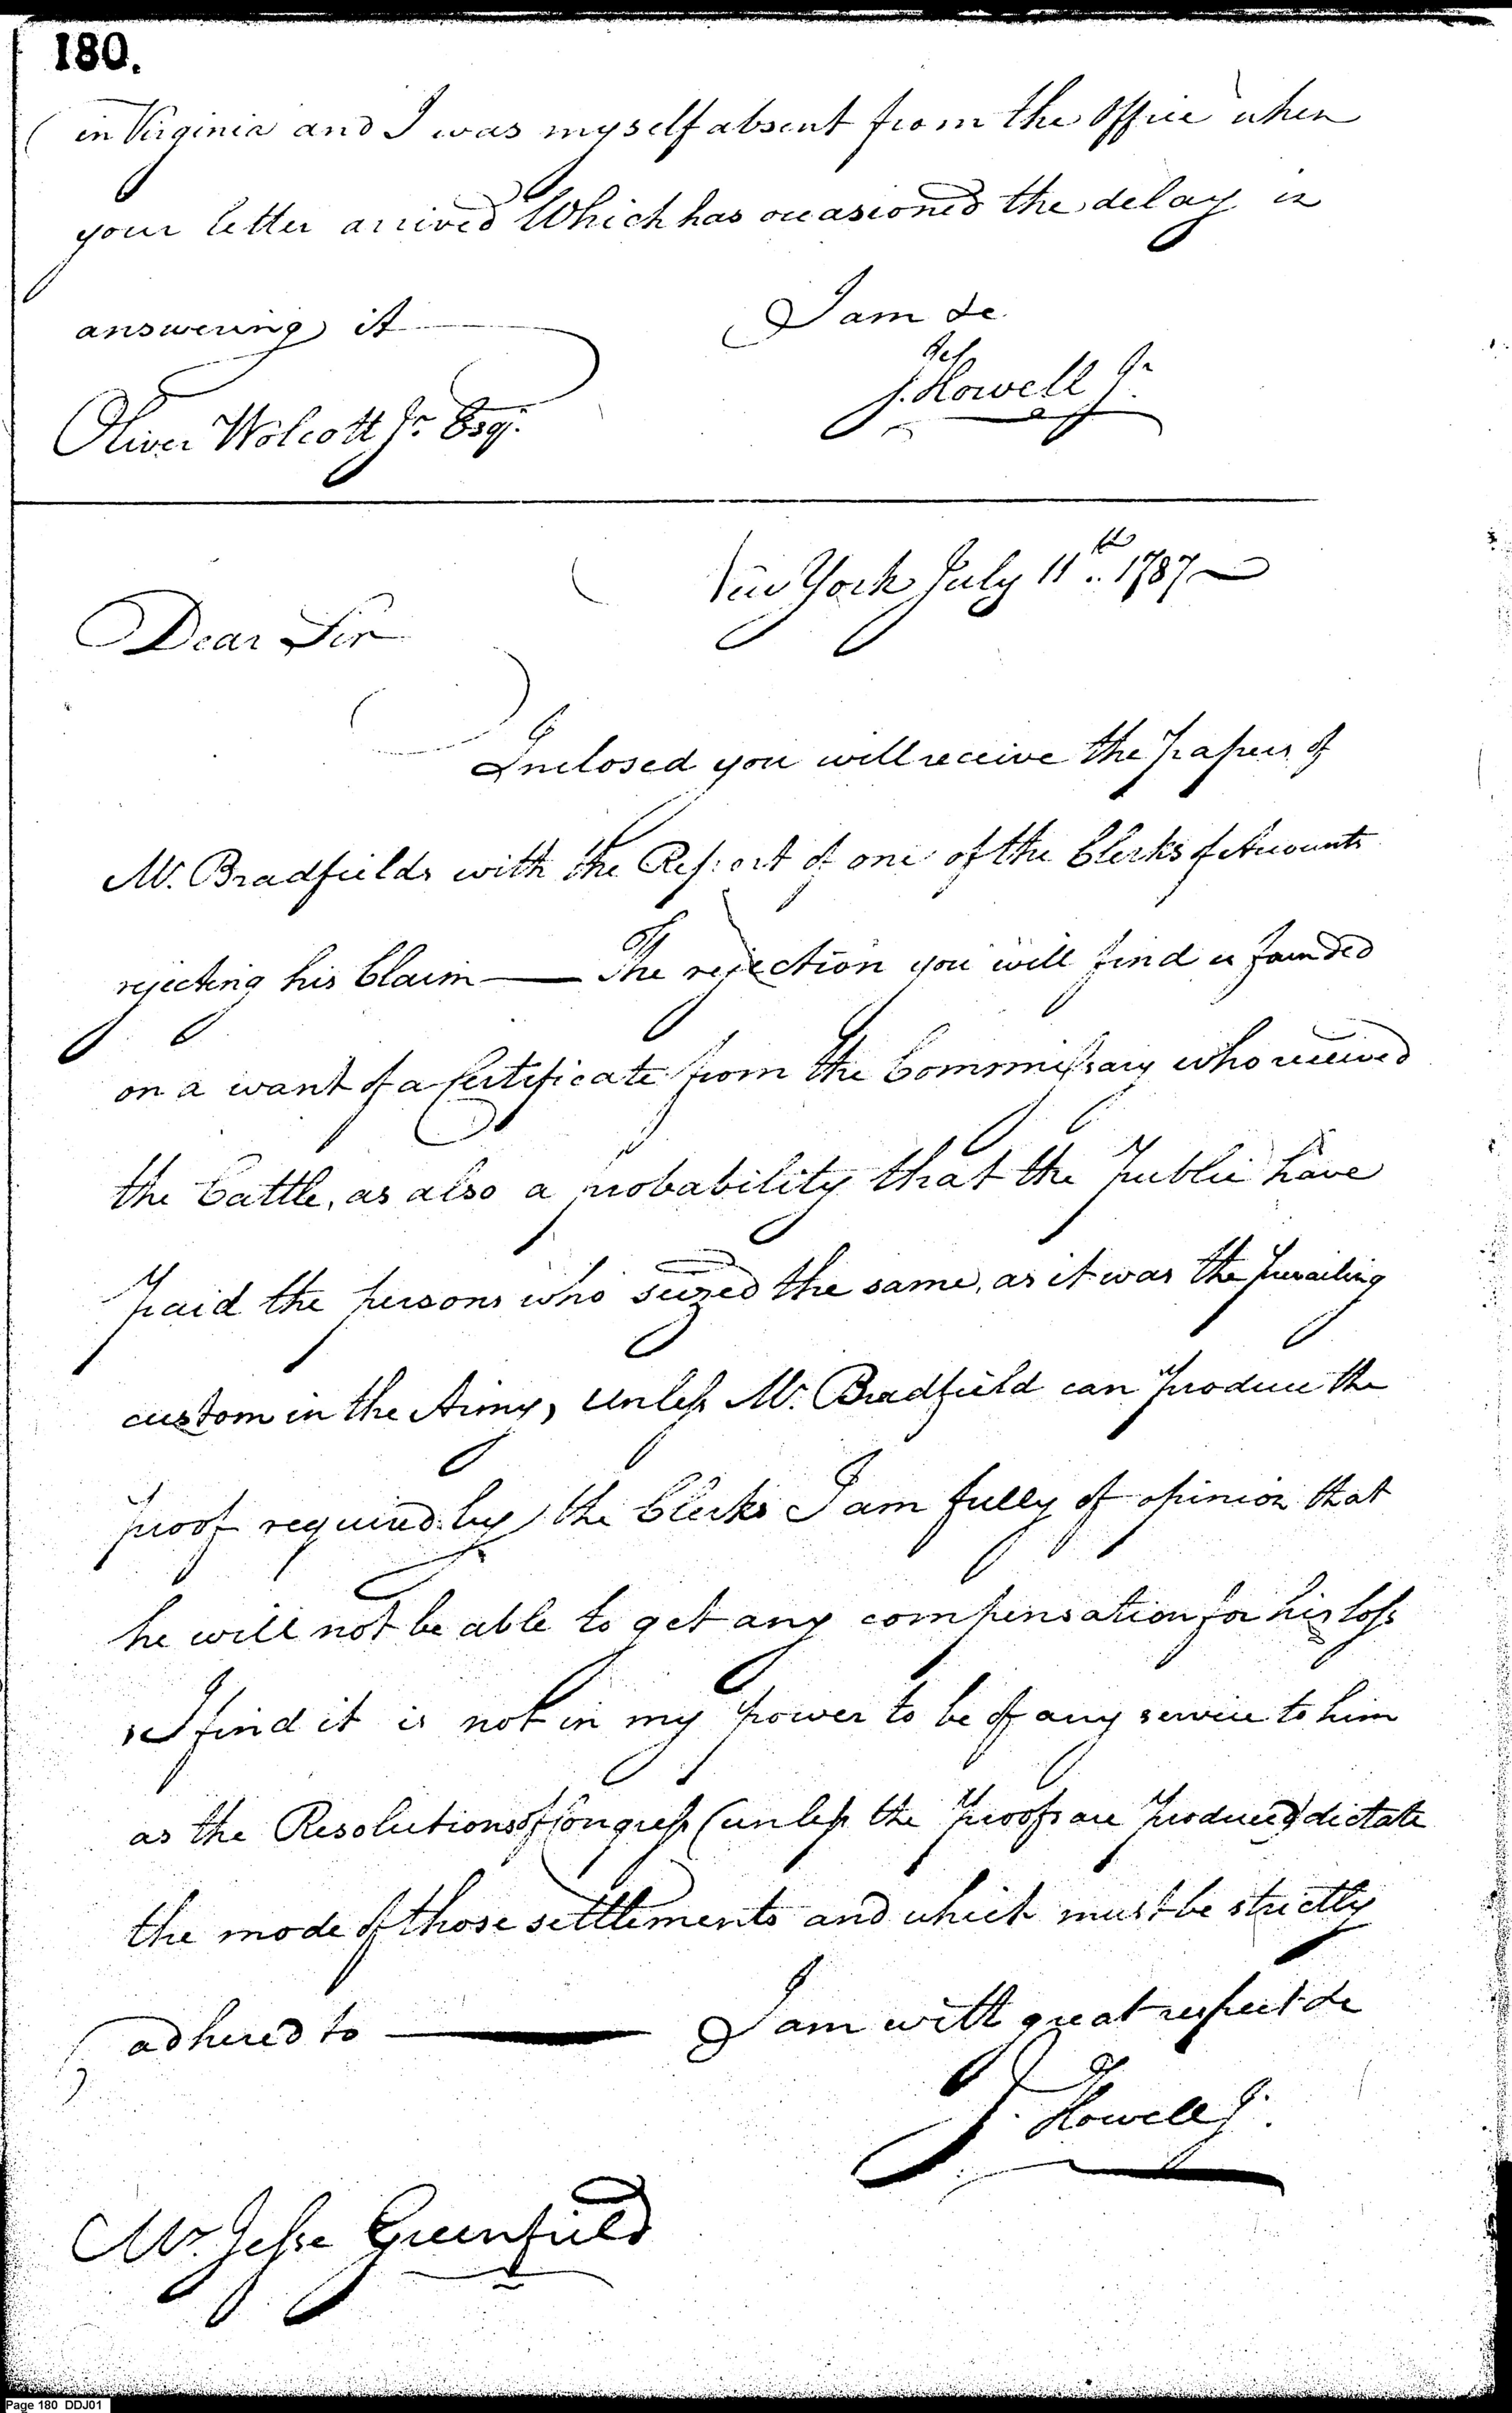 180.
in Virginia and I was myself absent from the Office when
your letter arrived Which has occasioned the delay in
answering it
I am &c.
J. Howell Jr.
Oliver Wolcott Jr. Esq.
New York July 11th.. 1787
Dear Sir
Inclosed you will receive the Papers of
Mr. Bradfields with the Report of one of the Clerks of Accounts
rejecting his Claim — The rejection you will find is founded
on a want of a Certificate from the Commissary who received
the Cattle, as also a probability that the Public have
Paid the persons who seized the same, as it was the Prevailing
custom in the Army, Unless Mr. Bradfield can Produce the
Proof required by the Clerks I am fully of opinion that
he will not be able to get any compensation for his loss
I find it is not in my Power to be of any service to him
as the Resolutions of Congress (unless the Proofs are Produced) dictate
the mode of those settlements and which must be strictly
adhered to — I am with great respect &c
J. Howell Jr.
Mr. Jesse Greenfield
Page 180 DDJ01